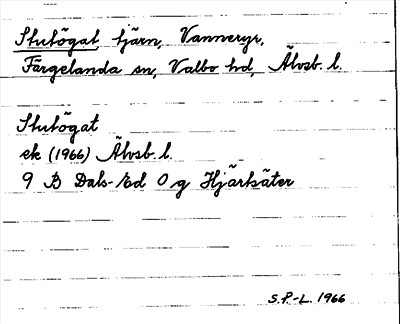 Stutögat tjärn, Vanneryr,
Färgelanda sn, Valbo hd, Älvsb. l.
Stutögat
ek (1966) Älvsb. l.
9 B Dals-Ed O g Hjärtsäter
S.P.-L. 1966